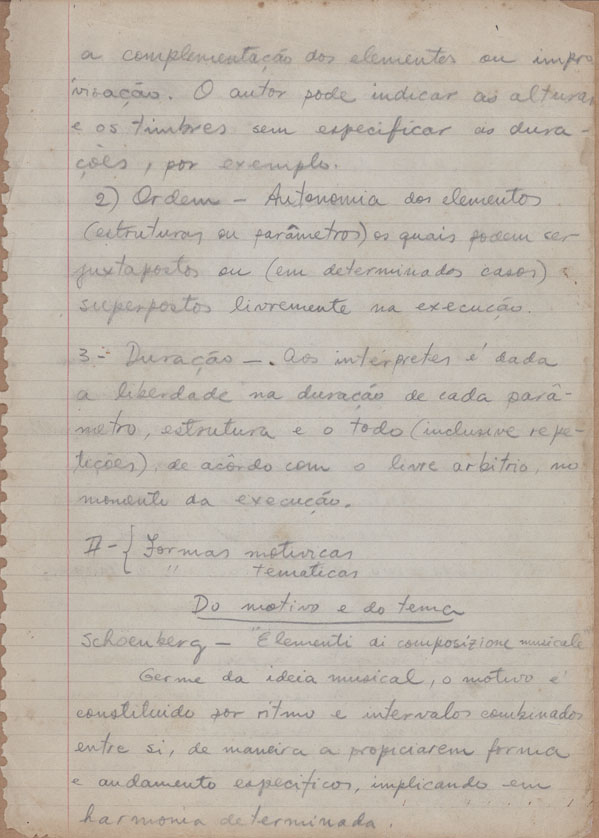 a complementação dos elementos ou impro
visação. O autor pode indicar as alturas
e os timbres sem especificar as dura-
ções, por exemplo.
2) Ordem - Autonomia dos elementos
(estruturas ou parâmetros) os quais podem ser
juxtapostos ou (em determinados casos)
superpostos livremente na execução.
3 - Duração - . Aos intérpretes é dada
a liberdade na duração de cada parâ-
metro, estrutura e o todo (inclusive repe-
tições), de acôrdo com o livre arbitrio, no
momento da execução.
II - { Formas motivicas
" tematicas
Do motivo e do tema
Schoenberg - "Elementi di composizione musicale
Germe da ideia musical, o motivo é
constituido por ritmo e intervalos combinados
entre si, de maneira a propiciarem forma
e andamento especificos, implicando em
harmonia determinada.